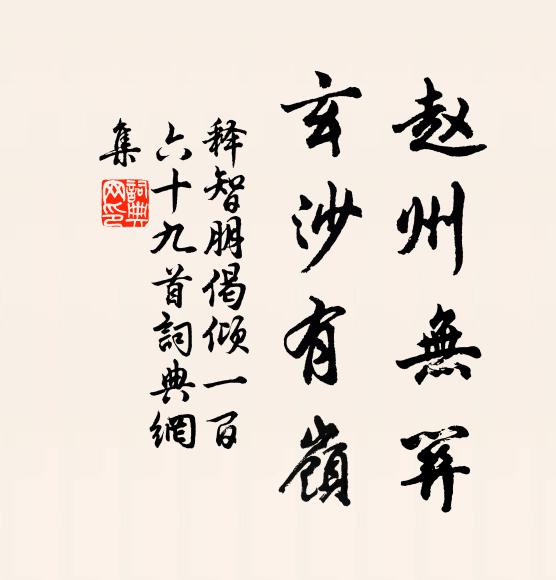 赵州無
玄沙有嶺
释智朋偈倾一百
六十九首詞典網
集
詞典
网印